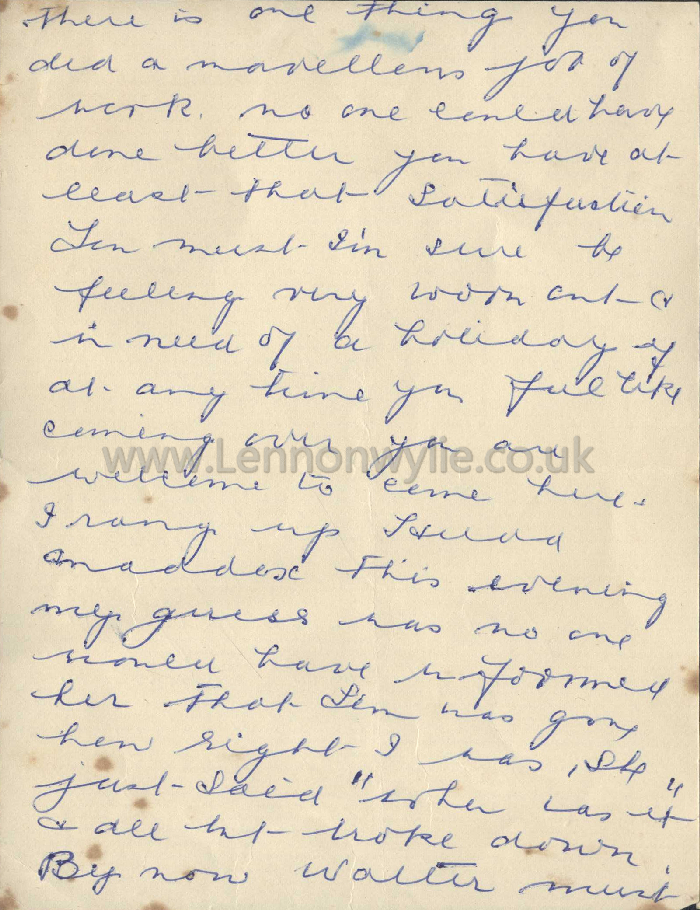 there is one thing you
did a mavellens job of
work. no one could have
done better you have at-
least that satisfaction
You must I'm sure be
feeling very worn out &
in need of a holiday if
at any time you feel like
coming over you are
www.Lennonwylie.co.uk
welcome to come here.
I rang up Hilda
Maddox this evening
my guess was no one
would have informed
her that Lem was gone
how right I was, she
just said "when was it"
& all but broke down.
By now Walter must